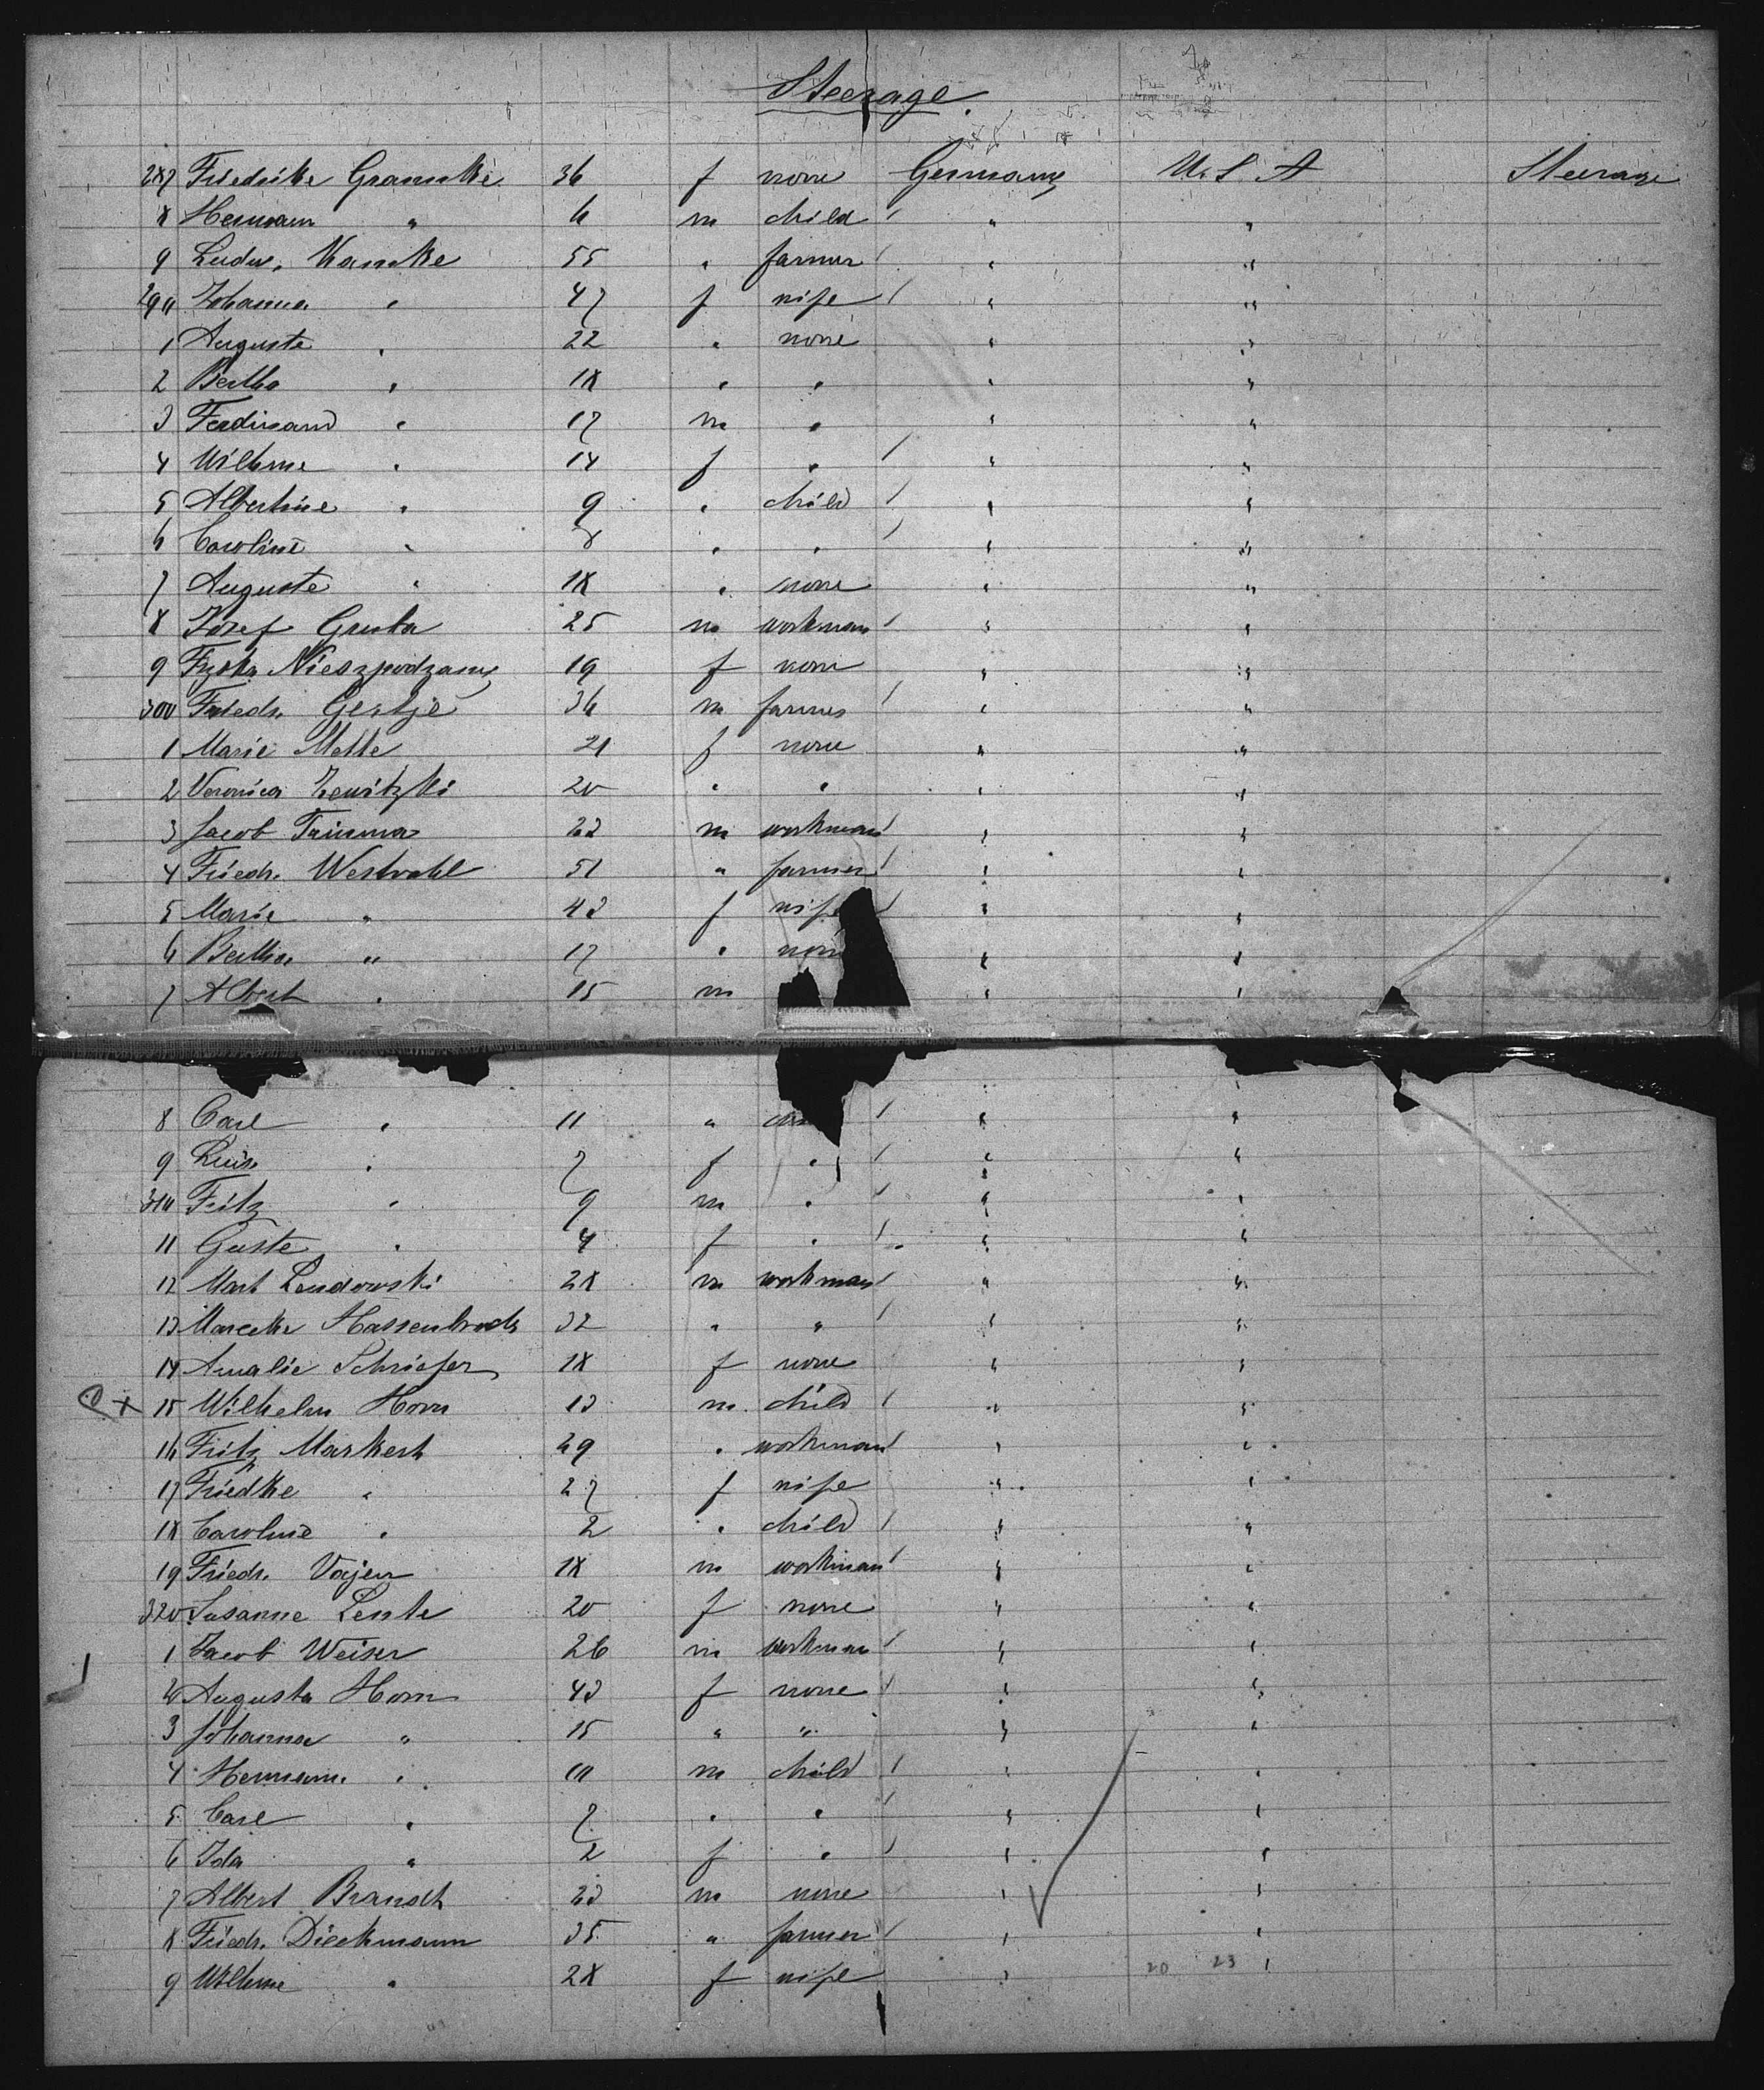 Steerage.
287 Friedrike Gramske 36 f none Germany U. S. A Steerage
8 Hermann " 6 m child / " "
9 Ludw. Kamke 55 " farmer / " "
290 Johanna " 47 f wife / " "
1 Auguste " 22 " none " "
2 Bertha " 18 " " " "
3 Ferdinand " 17 m " " "
4 Wilhme " 14 f " / " "
5 Albertine " 9 " child / " "
6 Caroline " 8 " " / " "
7 Auguste " 18 " none " "
8 Josef Gruba 25 m workman / " "
9 Nieszpodzany 19 f none " "
300 Friedr. Gertje 36 m farmer / " "
1 Marie Mette 21 f none " "
2 Veronica 20 " " " "
3 Jacob 23 m workman / " "
4 Friedr. Westvahl 51 " farmer / " "
5 Marie " 43 f wife / " "
6 Bertha " 17 " none " "
7 Albert " 15 m " "
8 Carl " 11 " / " "
9 Luise " 7 f " / " "
310 Fritz " 9 m " / " "
11 Guste " 4 f " / " "
12 Mart Lendowski 28 m workman / " "
13 32 " " / " "
14 Amalie Schriefer 18 f none " "
x 15 Wilhelm Horn 13 m child / " "
16 Fritz Markert 29 " workman / " "
17 Friedke " 27 f wife " "
18 Caroline " 2 " child / " "
19 Friedr. Vajen 18 m workman / " "
320 Susanne Lente 20 f none " "
1 Jacob Weiser 26 m workman / " "
2 Augusta Horn 43 f none / " "
3 Johanna " 15 " " " "
4 Hermann " 10 m child / " "
5 Carl " 7 " " / " "
6 Ida " 2 f " / " "
7 Albert Brandt 23 m none " "
8 Friedr. Dieckmann 35 " farmer / " "
9 Wilhme " 28 f wife " 20 23 "